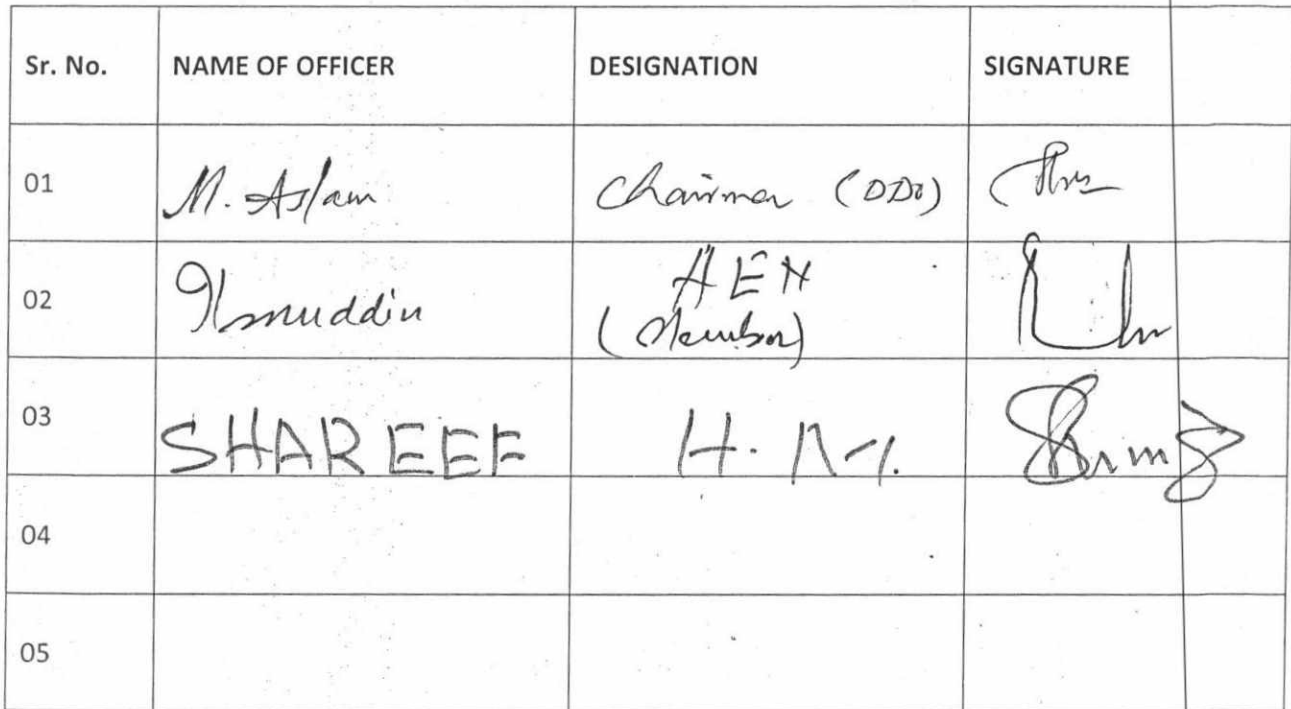 Sr. No. NAME OF OFFICER DESIGNATION SIGNATURE
01 M. Aslam Chairman (DDO)
02 Ilmuddin AEN
(Member)
03 SHAREEF H. M.
04
05